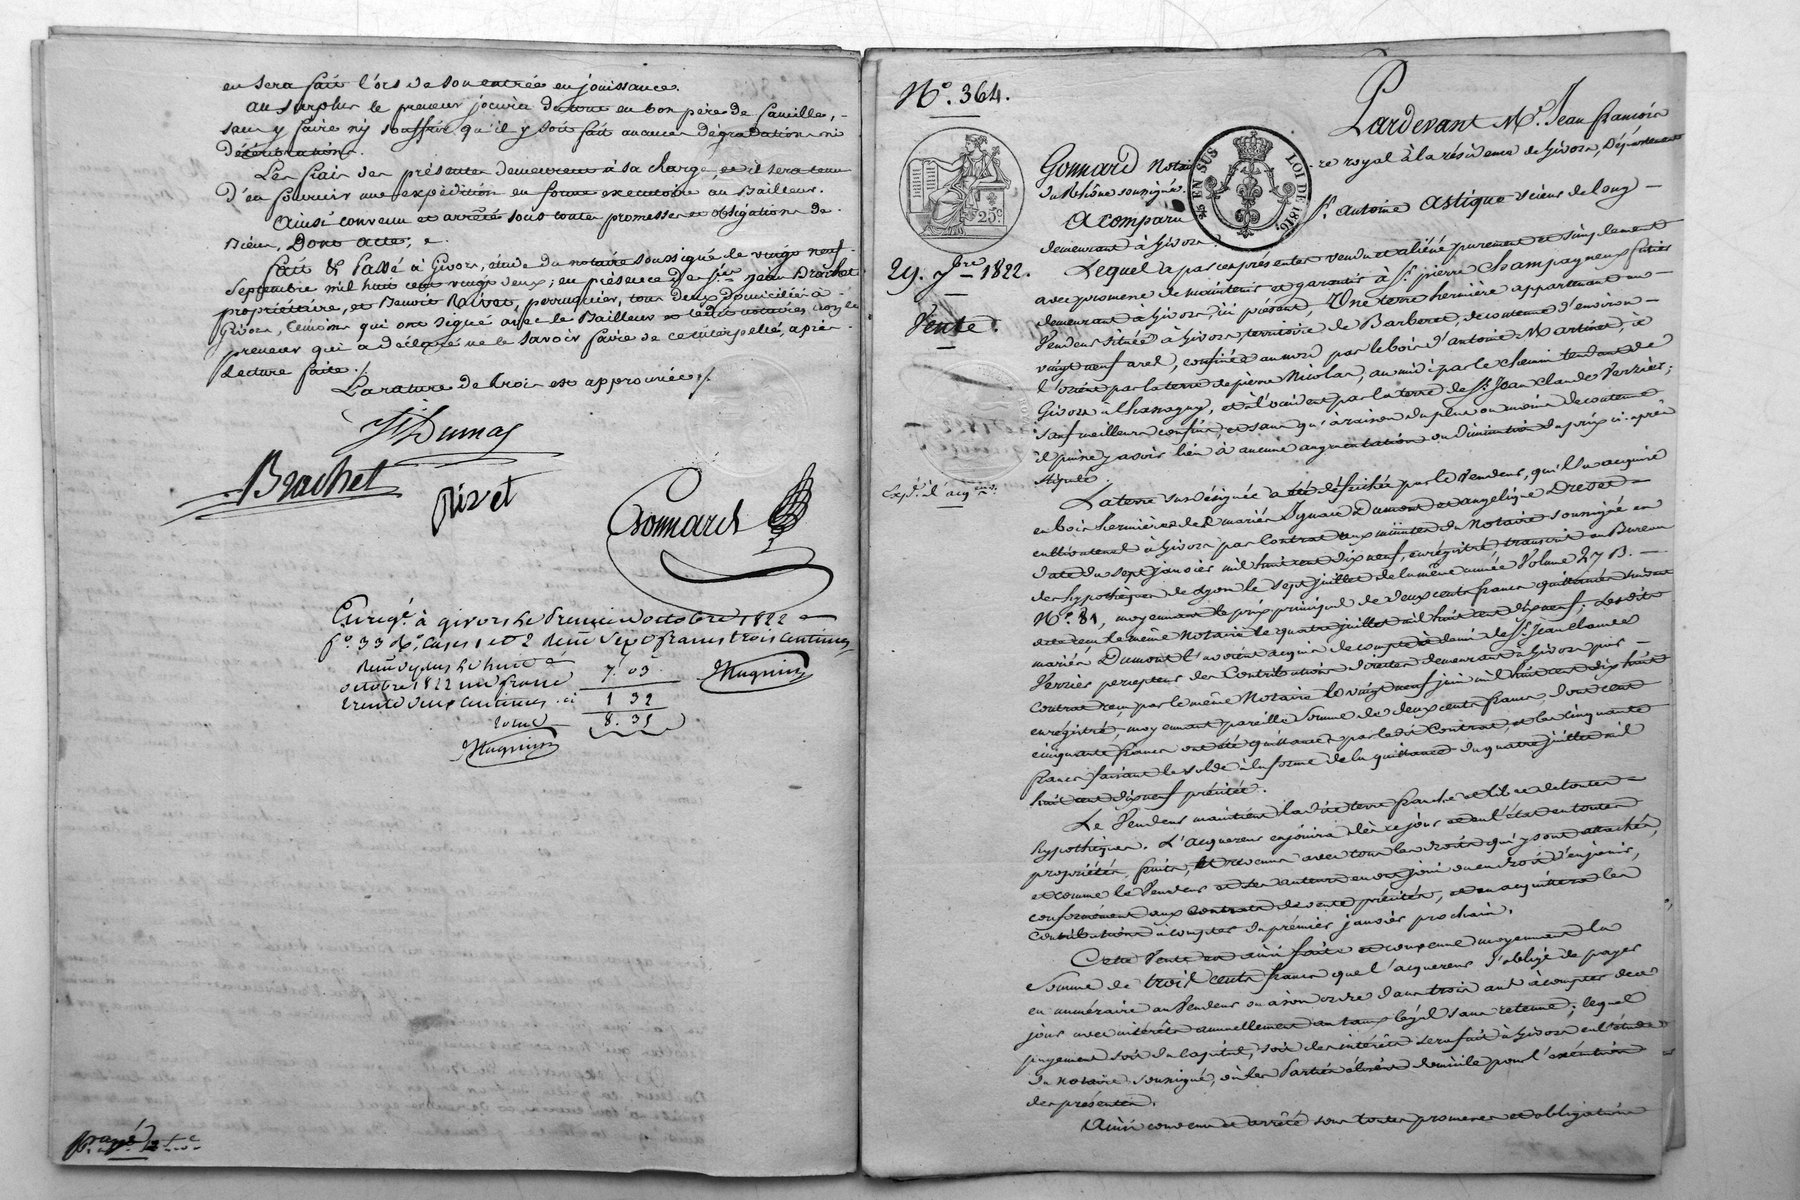 en sera fait l'ors de son entrée en jouissance.
au surplus le preneur jouira du tout en bon père de famille, -
sans y faire n'y souffrir qu'il y soit fait aucunes dégradations ni
détériorations.
Les frais des présentes demeurent à sa charge, et il sera tenu
d'en fournir une expédition en forme exécutoire au Bailleur.
Ainsi convenu et arrêté sous toutes promesses et obligations de
Biens, Dont acte,
fait & Passé à Givors, étude du notaire soussigné le vingt neuf
Septembre mil huit cent vingt deux; en présence de Srs Jean Brachet
propriétaire, et Benoit Rivet, perruquier, tous deux domiciliés à
Givors, témoins qui ont signé avec le Bailleur et ledit notaire, non le
preneur qui a déclaré ne le savoir faire de ce interpellé, après
lecture faite./.
La rature de trois est approuvée./.
Dumas
Brachet
Rivet
Gonnard
Enregé à givors le Premier octobre 1822
fo 33 Ro, cases 1 et 2 Reçu Sept francs trois centimes
octobre 1822 un franc
trente deux centimes. ci
7. 03
1 32
8. 35
Hugnin
Hugnin
No. 364.
Pardevant Me Jean françois
Gonnard Notaire royal à la résidence de Givors, Département
du Rhône soussigné.
A comparu Sr. Antoine Astique veieur de long
demeurant à Givors.
EN SUS
LOI DE 1816
25c
29. 7bre 1822.
Vente.
Lequel a par ces présentes vendu et aliéné purement et simplement
avec promesse de maintenir et garantir à Sr. pierre Champagneux
demeurant à Givors, ici présent, Une terre hermière appartenant au
Vendeur située à Givors, territoire de Barberet, de contenue d'environ
vingt neuf ares, confinée au nord par le bois d'antoine Martinet, à
l'orient par la terre de pierre Nicolas, au midi par le chemin tendant de
Givors à Chassagny, et à l'occident par la terre de Sr. Jean Claude Verrier;
sauf meilleurs confins, et sans qu'à raison du plus ou moins de contenue
il puisse y avoir lieu à aucune augmentation ou diminution du prix ci-après
stipulé.
Expé. d'acqeur.
La terre sus désignée a été défrichée par le Vendeur, qui l'a acquise
en bois hermières de mariés Ignace Dumont et angélique Drevet
cultivateurs à Givors par Contrat aux minutes du Notaire soussigné en
date du sept janvier mil huit cent dix neuf, enrégistré, transcrit au Bureau
des hypothèques de Lyon le sept juillet de la même année Volume 27 B.
No. 81, moyennant le prix principal de deux cents francs quittancés suivant
acte reçu le même Notaire le quatre juillet mil huit cent dix neuf; Lesdits
mariés Dumont l'avoient acquis de compte à demi de Sr. Jean Claude
Verrier percepteur des Contributions directes demeurant à Givors par
Contrat reçu par le même Notaire le vingt neuf juin mil huit cent dix huit
enrégistré, moyennant pareille somme de deux cents francs, dont cent
cinquante francs ont été quittancés par ledit Contrat, et les cinquante
francs faisant le solde à la forme de la quittance du quatre juillet mil
huit cent dix neuf précitée.
Le Vendeur maintient la dite terre franche et libre de toutes
hypothèques. L'acquereur en jouira dès ce jour et en l'état en toutes
propriétés, fruits, et revenus avec tous les droits qui y sont attachés,
et comme le Vendeur et ses auteurs en ont joui ou eu droit d'en jouir,
conformément aux contrats de vente précités, et en acquittera les
contributions à compter du premier janvier prochain.
Cette Vente est ainsi faite et convenue moyennant la
Somme de trois cents francs que l'acquereur s'oblige de payer
en numéraire au Vendeur ou à son ordre dans trois ans à compter de ce
jour avec intérêts annuellement au taux légal sans retenue; lequel
payement soit du capital, soit des intérêts sera fait à Givors en l'étude
du notaire soussigné, où les Parties élisent domicile pour l'exécution
des présentes.
Ainsi convenu et arrêté sous toutes promesses et obligations